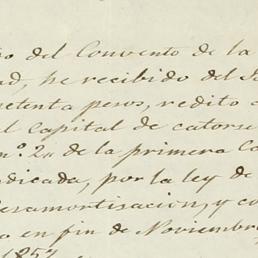 del Convento de la
ad, he recibido del S
etenta pesos, redito
el Capital de catorse
nº 2,, de la primera Ca
dicada, por la ley de
esamortisacion, y co
o en fin de Noviembre
1857